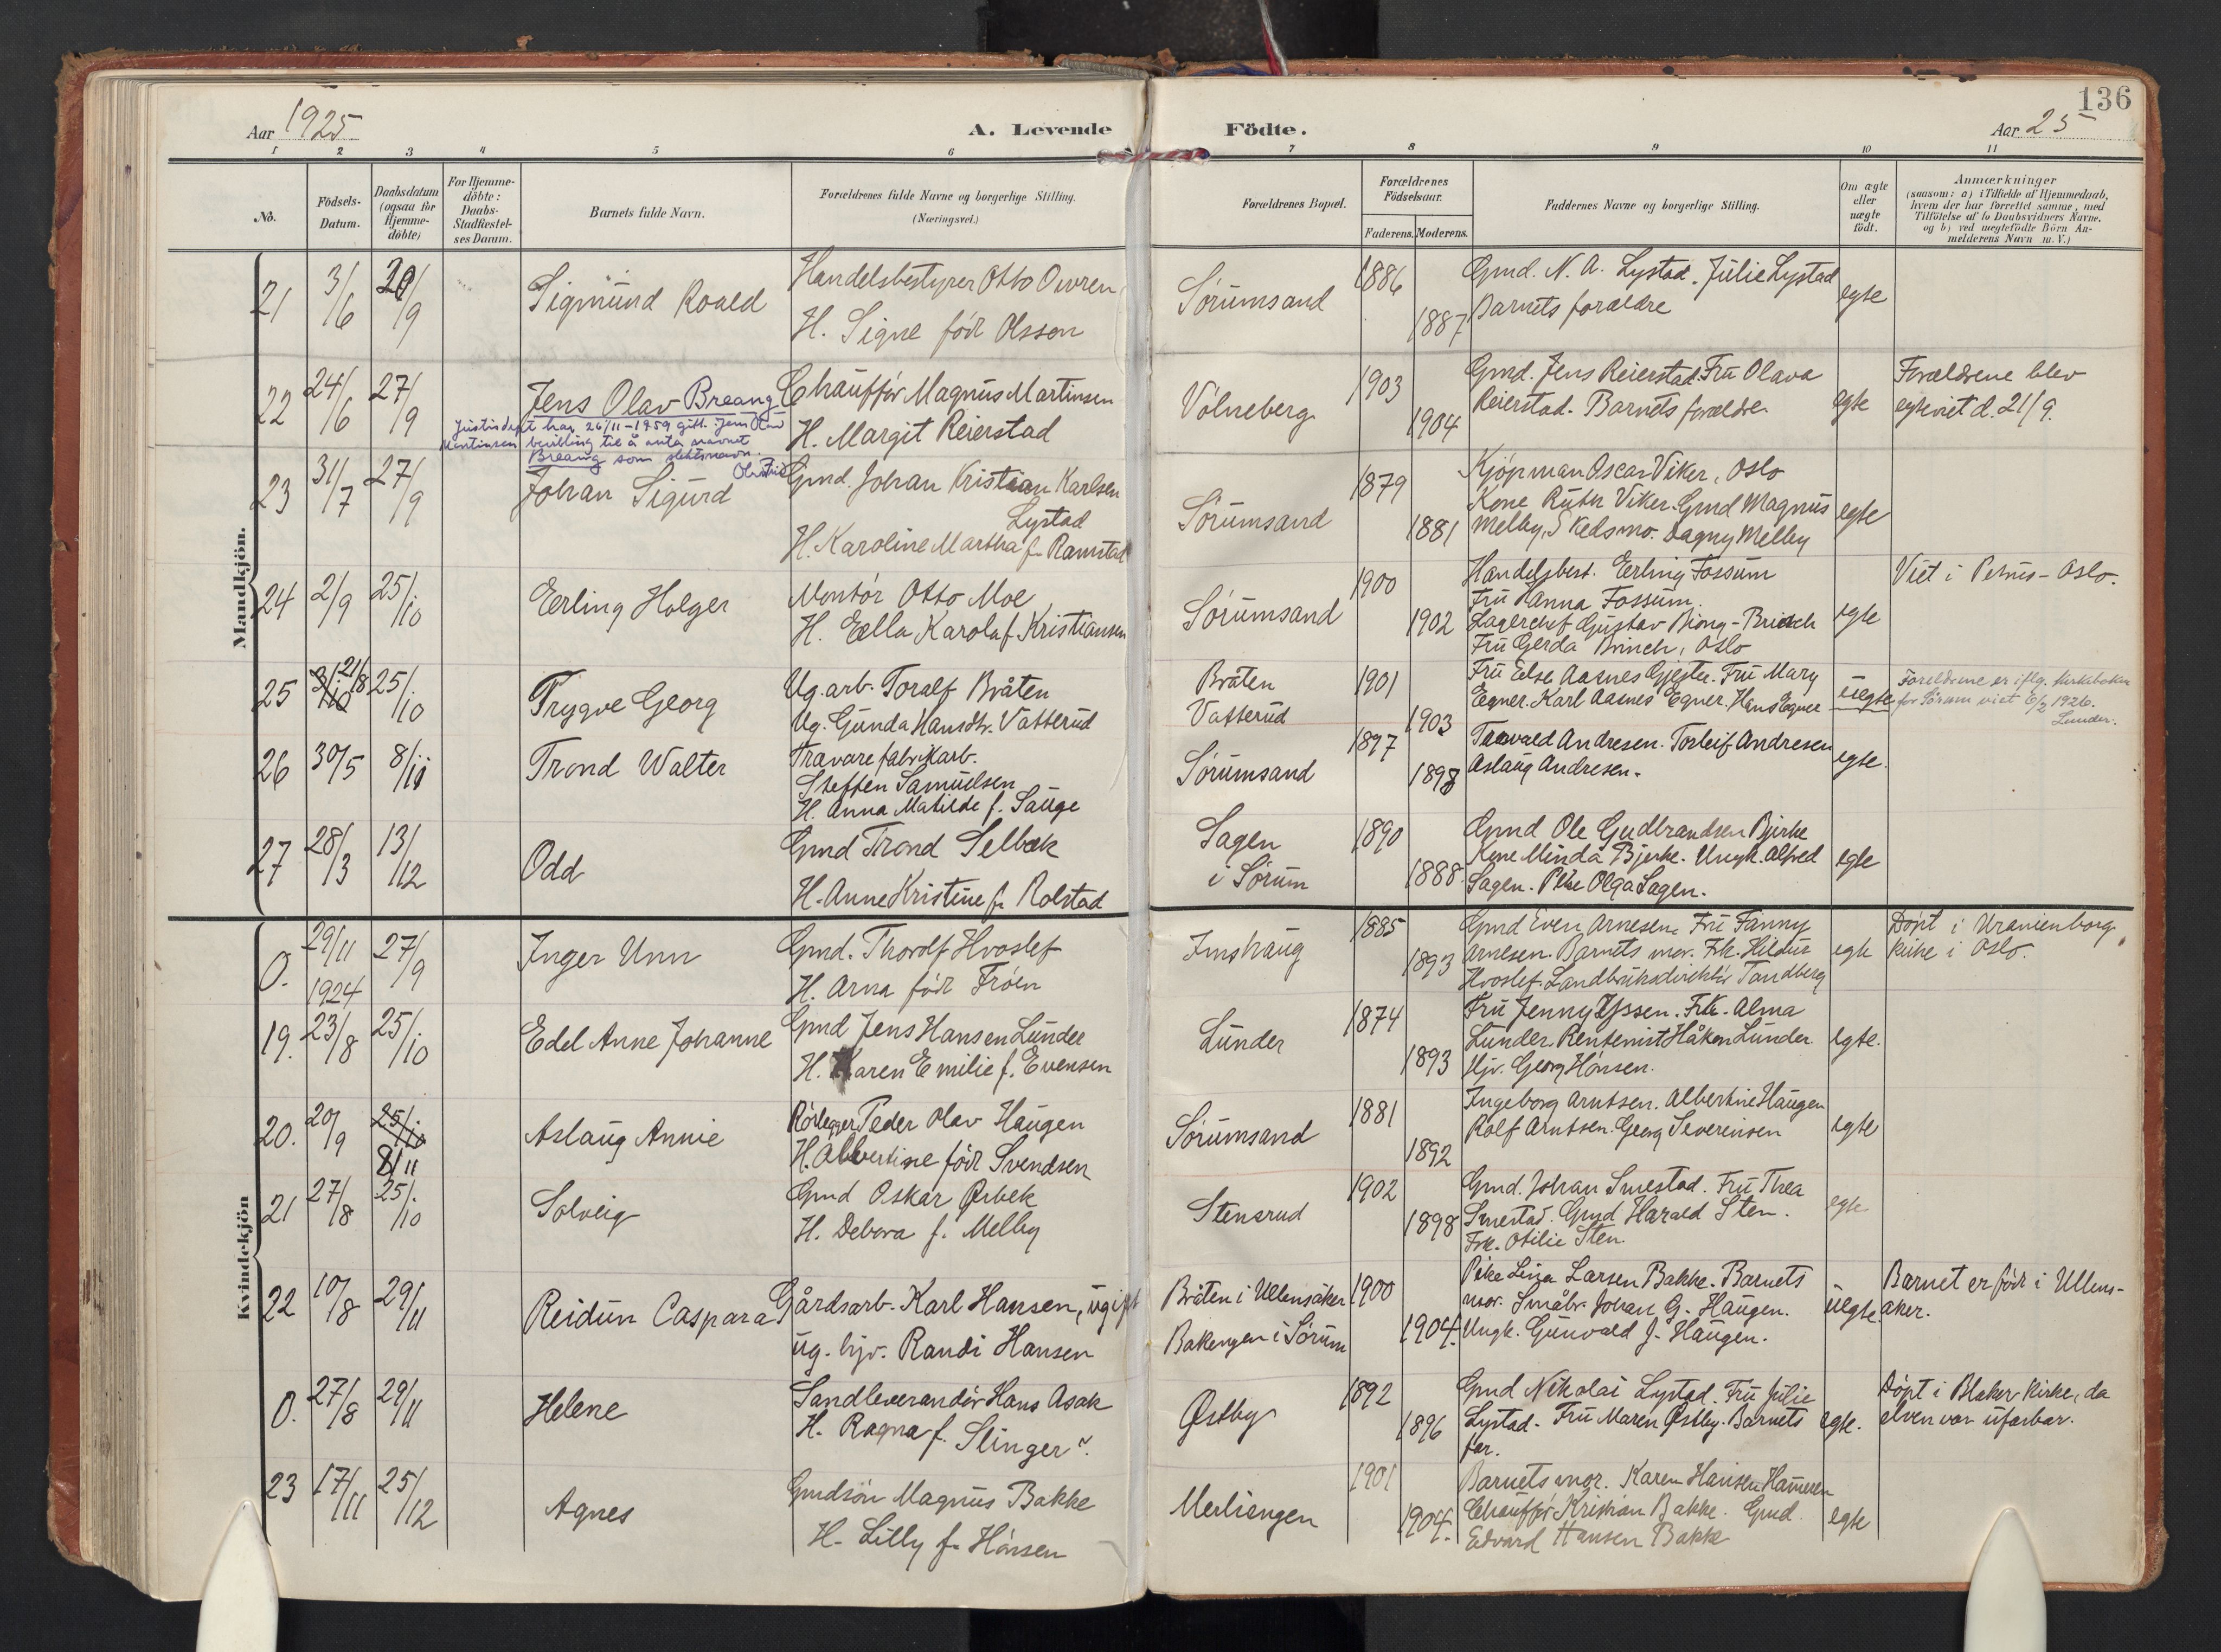 136
Aar 1925
A. Levende
Födte.
Aar 25
1 2 3 4 5 6 7 8 9 10 11
No.
Födsels-
Datum.
Daabsdatum
(ogsaa for
Hjemme-
döbte)
For Hjemme-
döbte:
Daabs-
Stadfæstel-
ses Datum.
Barnets fulde Navn.
Forældrenes fulde Navne og borgerlige Stilling.
(Næringsvei.)
Forældrenes Bopæl.
Forældrenes
Födselsaar.
Faderens. Moderens.
Faddernes Navne og borgerlige Stilling.
Om ægte
eller
uægte
födt.
Anmærkninger
(saasom: a) i Tilfælde af Hjemmedaab,
hvem der har forrettet samme, med
Tilföielse af to Daabsvidners Navne.
og b) ved uægtefödte Börn An-
melderens Navn m. V.)
Mandkjön.
21 3/6 20/9 Sigmund Roald
Handelsbestyrer Otto Ouren
H. Signe född Olsson
Sörumsand 1886 1887
Gmd. N. A. Lystad. Julie Lystad
Barnets forældre
egte
22 24/6 27/9 Jens Olav Breang
Justisdept har 26/11-1959 gitt Jens Olav
Martinsen bevilling til å anta navnet
Breang som slektsnavn.
Chaufför Magnus Martinsen
H. Margit Reierstad
Völneberg 1903 1904
Gmd. Jens Reierstad. Fru Olava
Reierstad. Barnets forældre
egte
Forældrene blev
egteviet d. 21/9.
23 31/7 27/9 Johan Sigurd
Gmd. Johan Kristian Karlsen
Lystad
H. Karoline Martha f. Ramstad
Sörumsand 1879 1881
Kjöpman Oscar Viker, Oslo
Kone Ruth Viker. Gmd Magnus
Melby, Skedsmo. Dagny Melby
egte
24 2/9 25/10 Erling Holger
Montör Otto Moe
H. Ella Karola f. Kristiansen
Sörumsand 1900 1902
Handelsbest. Erling Fossum
Fru Anna Fossum.
Lagerchef Gustav Biong-Brinch
Fru Gerda Brinch, Oslo
egte
Viet i Petrus- Oslo.
25 3/10 21/8 25/10 Trygve Georg
Ug. arb. Toralf Bråten
Ug. Gunda Hansdtr. Vatterud
Bråten
Vatterud
1901 1903
Fru Else Aasnes Gjester. Fru Mary
Egner. Karl Aasnes Egner. Hans Egner
uegte
Foreldrene er iflg. kirkeboken
for Sörum viet 6/2 1926.
Lunder.
26 30/5 8/11 Trond Walter
Trævarefabrikarb.
Steffen Samuelsen
H. Anna Matilde f. Sauge
Sörumsand 1897 1898
Torvald Andresen. Torleif Andresen
Aslaug Andresen.
egte.
27 28/3 13/12 Odd
Gmd Trond Selbæk
H. Anne Kristine f. Rolstad
Sagen
i Sörum
1890 1888.
Gmd Ole Gudbrandsen Bjerke
Kone Minda Bjerke. Ungk. Alfred
Sagen. Pike Olga Sagen.
egte
Kvindekjön
0. 29/11 1924 27/9 Inger Unn
Gmd. Thorolf Hvoslef
H. Arna född Fröen
Imshaug 1885 1893
Gmd Even Arnesen. Fru Fanny
Arnesen. Barnets mor. Frk. Hildur
Hvoslef. Landbruksdirektör Tandberg
egte
Döpt i Uranienborg
kirke i Oslo.
19. 23/8 25/10 Edel Anne Johanne
Gmd Jens Hansen Lunder
H. Karen Emilie f. Evensen
Lunder 1874 1893
Fru Jenny Ussen. Frk. Alma
Lunder. Rentenist Håken Lunder.
Hjv. Georg Hansen.
egte.
20. 20/9 25/10 8/11 Aslaug Annie
Rörlegger Peder Olav Haugen
H. Albertine född Svendsen
Sörumsand 1881 1892
Ingeborg Arntsen. Albertine Haugen
Rolf Arntsen. Georg Severensen
egte
21 27/8 25/10 Solveig
Gmd Oskar Ørbek
H. Debora f. Melby
Stensrud 1902 1898
Gmd. Johan Smestad. Fru Thea
Smestad. Gmd Harald Sten.
Frk. Otilie Sten.
egte
22 10/8 29/11 Reidun Caspara
Gårdsarb. Karl Hansen, ugift
ug. hjv. Randi Hansen
Bråten i Ullensaker
Bakengen i Sörum
1900 1904.
Pike Lina Larsen Bakke. Barnets
mor. Småbr. Johan G. Haugen.
Ungk. Gunvald J. Haugen.
uegte.
Barnet er född i Ullens-
aker.
0. 27/8 29/11 Helene
Sandleverandör Hans Asak
H. Ragna f. Slinger
Østby 1892 1896
Gmd Nikolai Lystad. Fru Julie
Lystad. Fru Maren Østby. Barnets
far.
egte.
Döpt i Blaker kirke, da
elven var ufarbar.
23 17/11 25/12 Agnes
Gmdsön Magnus Bakke
H. Lilly f. Hansen
Merliengen 1901 1904.
Barnets mor. Karen Hansen Hammeren
Chaufför Kristian Bakke. Gmd.
Edvard Hansen Bakke
egte